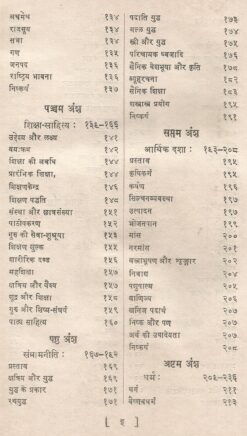 अश्वमेध १३४
राजसूय १३४
सभा १३४
गण १३५
जनपद १३६
राष्ट्रिय भावना १३६
निष्कर्ष १३७
पञ्चम अंश
शिक्षा-साहित्य : १३९-१६६
उद्देश्य और लक्ष्य १४१
वय:क्रम १४२
शिक्षा की अवधि १४४
प्रारंभिक शिक्षा, १४४
शिक्षणकेन्द्र १४६
शिक्षण पद्धति १४८
संस्था और छात्रसंख्या १५१
पाठोपकरण १५२
गुरु की सेवा-शुश्रूषा १५३
शिक्षण शुल्क १५५
शारीरिक दण्ड १५६
सहशिक्षा १५७
क्षत्रिय और वैश्य १५७
शूद्र और शिक्षा १५८
गुरु और शिष्य-संघर्ष १५९
पाठ्य साहित्य १६०
षष्ठ अंश
संग्रामनीति : १६७-१९२
प्रस्ताव १६९
क्षत्रिय और युद्ध १६९
युद्ध के प्रकार १७१
रथयुद्ध १७१
पदाति युद्ध १७३
मल्ल युद्ध १७४
स्त्री और युद्ध १७५
परिचायक ध्वजादि १७६
सैनिक वेशभूषा और कृति १७८
व्यूहरचना १८२
सैनिक शिक्षा १८३
शस्त्रास्त्र प्रयोग १८५
निष्कर्ष १९१
सप्तम अंश
आर्थिक दशा : १९३-२०८
प्रस्ताव १९५
कृषिकर्म १९५
कर्षण १९६
सिञ्चनव्यवस्था १९६
उत्पादन १९७
भोजनपान १९९
मांस २००
नरमांस २०१
वस्त्राभूषण और शृङ्गार २०२
निवास २०४
पशुपाल्य २०५
वाणिज्य २०६
खनिज पदार्थ २०७
निष्क और पण २०७
अर्थ की उपादेयता २०७
निष्कर्ष २०८
अष्टम अंश
धर्म : २०९-२३६
धर्म २११
वैष्णवधर्म २१३
[ ६ ]